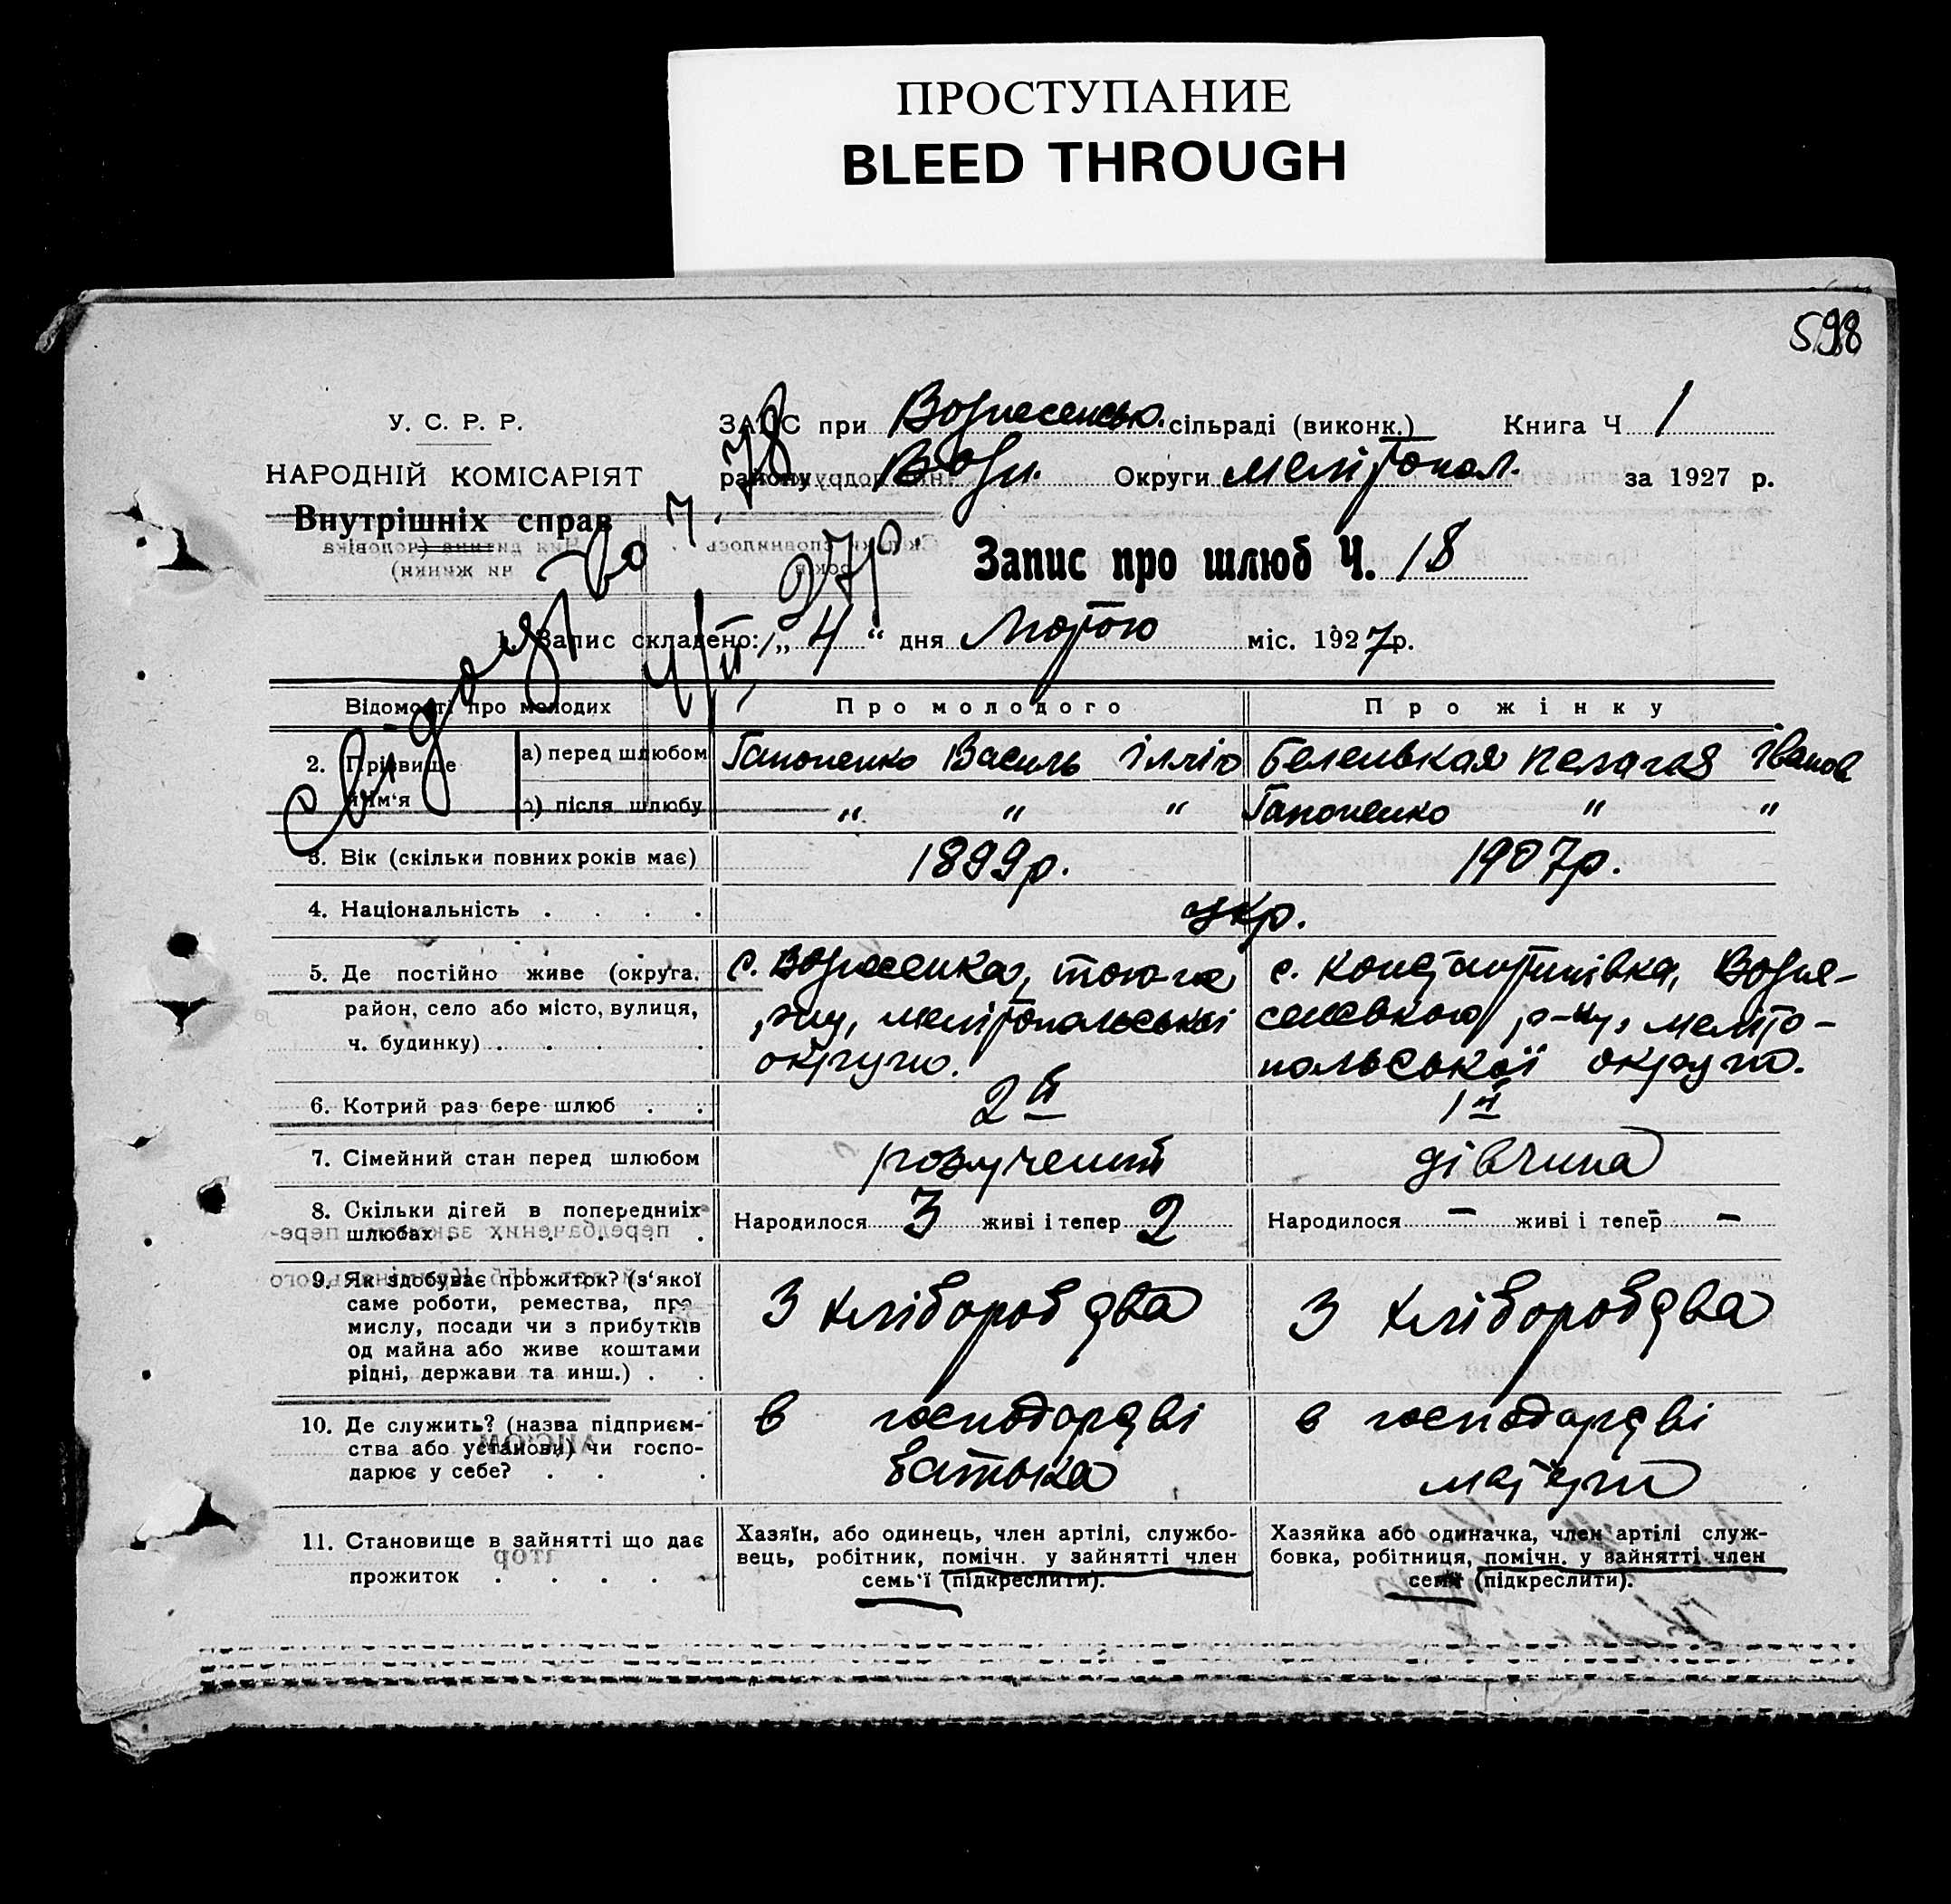 ПРОСТУПАНИЕ
BLEED THROUGH
598
У. С. Р. Р.
НАРОДНІЙ КОМІСАРІЯТ
Внутрішніх справ
ЗАГС при Вознесенськ. сільраді (виконк.) Книга Ч 1
району Возн. Округи Мелітопол. за 1927 р.
Запис про шлюб Ч. 18
1. Запис складено: „ 4 “ дня Лютого міс. 1927 р.
Відомості про молодих Про молодого Про жінку
2. Прізвище й им‘я
а) перед шлюбом Гапоненко Василь Ілліч Беленькая Пелагея Іванов
б) після шлюбу „ „ „ Гапоненко „ „
3. Вік (скільки повних років має) 1899 р. 1907 р.
4. Національність . . . . укр.
5. Де постійно живе (округа, район, село або місто, вулиця, ч. будинку) . . . .
с. Вознесенка, того-ж
р-ну, Мелітопольської
округи.
с. Константинівка, Возне-
сенського р-ну, Меліто-
польської округи.
6. Котрий раз бере шлюб . . 2й 1й
7. Сімейний стан перед шлюбом розлучений дівчина
8. Скільки дігей в попередниіх шлюбах . . . . Народилося 3 живі і тепер 2 Народилося – живі і тепер –
9. Як здобуває прожиток? (з‘якої
саме роботи, ремества, про
мислу, посади чи з прибутків
од майна або живе коштами
рідні, держави та инш.) . .
З хліборобства З хліборобства
10. Де служить? (назва підприєм-
ства або установи) чи госпо-
дарює у себе? . . .
в господарстві
батька
в господарстві
матери
11. Становище в зайнятті що дає
прожиток . . . . .
Хазяїн, або одинець, член артілі, службо-
вець, робітник, помічн. у зайнятті член
семь‘ї (підкреслити).
Хазяйка або одиначка, член артілі служ-
бовка, робітниця, помічн. у зайнятті член
семї (підкреслити).